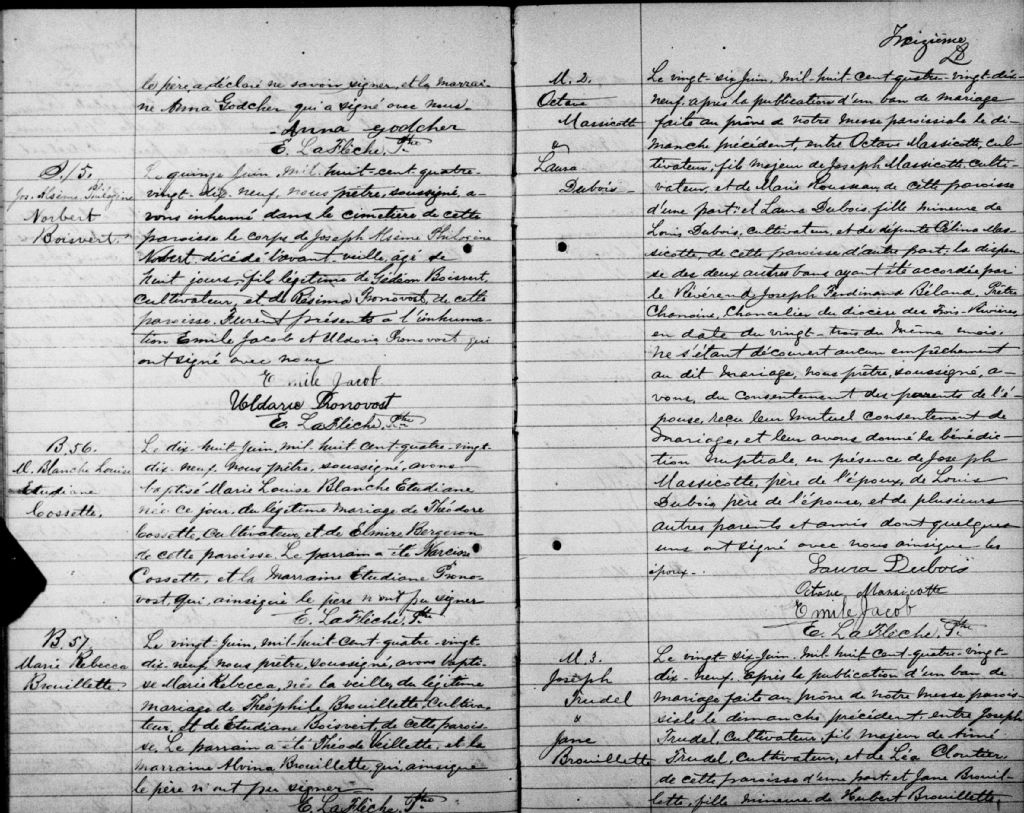 le père a déclaré ne savoir signer, et la marrai-
ne Anna Godcher qui a signé avec nous
Anna Godcher
E. LaFlèche, Ptre
S. 15.
Jos. Alsime Philozine
Norbert
Boisvert
Le quinze Juin, mil-huit-cent-quatre-
vingt-dix-neuf, nous prêtre, soussigné, a-
vons inhumé dans le cimetière de cette
paroisse le corps de Joseph Alsime
Nobert, décédé l'avant-veille, agé de
huit jours, fils légitime de Gédéon Boisvert,
Cultivateur, et de Rosima Pronovost, de cette
paroisse. Furent présents à l'inhuma-
tion Emile Jacob et Uldaric Pronovost qui
ont signé avec nous
Emile Jacob
Uldaric Pronovost
E. LaFlèche, Ptre
B. 56.
M. Blanche Louise
Etudiane
Cossette,
Le dix-huit Juin, mil-huit-cent-quatre-vingt-
dix-neuf, nous prêtre, soussigné, avons
baptisé Marie Louise Blanche Etudiane
née ce jour, du légitime mariage de Théodore
Cossette, Cultivateur, et de Elmire Bergeron
de cette paroisse. Le parrain a été Narcisse
Cossette, et la marraine Etudiane Prono-
vost, qui, ainsi que le père n'ont pu signer
E. LaFlèche, Ptre
B. 57
Marie Rebecca
Brouillette
Le vingt Juin, mil-huit-cent-quatre-vingt-
dix-neuf, nous prêtre, soussigné, avons bapti-
sé Marie Rebecca, née la veille, du légitime
mariage de Théophile Brouillette, Cultiva-
teur, et de Etudiane Boisvert, de cette parois-
se. Le parrain a été Théode Veillette, et la
marraine Alvina Brouillette, qui, ainsi que
le père n'ont pu signer
E. LaFlèche, Ptre
Treizième
M. 2.
Octave
Massicotte
&
Laura
Dubois
Le vingt-six Juin, mil-huit-cent-quatre-vingt-dix-
neuf, après la publication d'un ban de mariage
faite au prône de notre messe paroissiale le di-
manche précédent, entre Octave Massicotte, cul-
tivateur, fils majeur de Joseph Massicotte, culti-
vateur, et de Marie Rousseau de cette paroisse
d'une part; et Laura Dubois, fille mineure de
Louis Dubois, cultivateur, et de défunte Célina Mas-
sicotte, de cette paroisse d'autre part; la dispen-
se des deux autres bans ayant été accordée par
le Révérend Joseph Ferdinand Béland, Prêtre
Chanoine, Chancelier du diocèse des Trois-Rivières
en date du vingt-trois du même mois,
ne s'étant découvert aucun empêchement
au dit mariage, nous prêtre, soussigné, a-
vons, du consentement des parents de l'é-
pouse, reçu leur mutuel consentement de
mariage, et leur avons donné la bénédic-
tion nuptiale, en présence de Joseph
Massicotte, père de l'époux, de Louis
Dubois père de l'épouse, et de plusieurs
autres parents et amis dont quelques
uns ont signé avec nous ainsi que les
époux.
Laura Dubois
Octave Massicotte
Emile Jacob
E. LaFlèche, Ptre
M. 3.
Joseph
Trudel
&
Jane
Brouillette
Le vingt-six Juin, mil-huit-cent-quatre-vingt-
dix-neuf, après la publication d'un ban de
mariage faite au prône de notre messe parois-
siale le dimanche précédent, entre Joseph
Trudel, Cultivateur, fils majeur de Aimé
Trudel, Cultivateur, et de Léa Cloutier
de cette paroisse d'une part; et Jane Brouil-
lette, fille mineure de Hubert Brouillette,